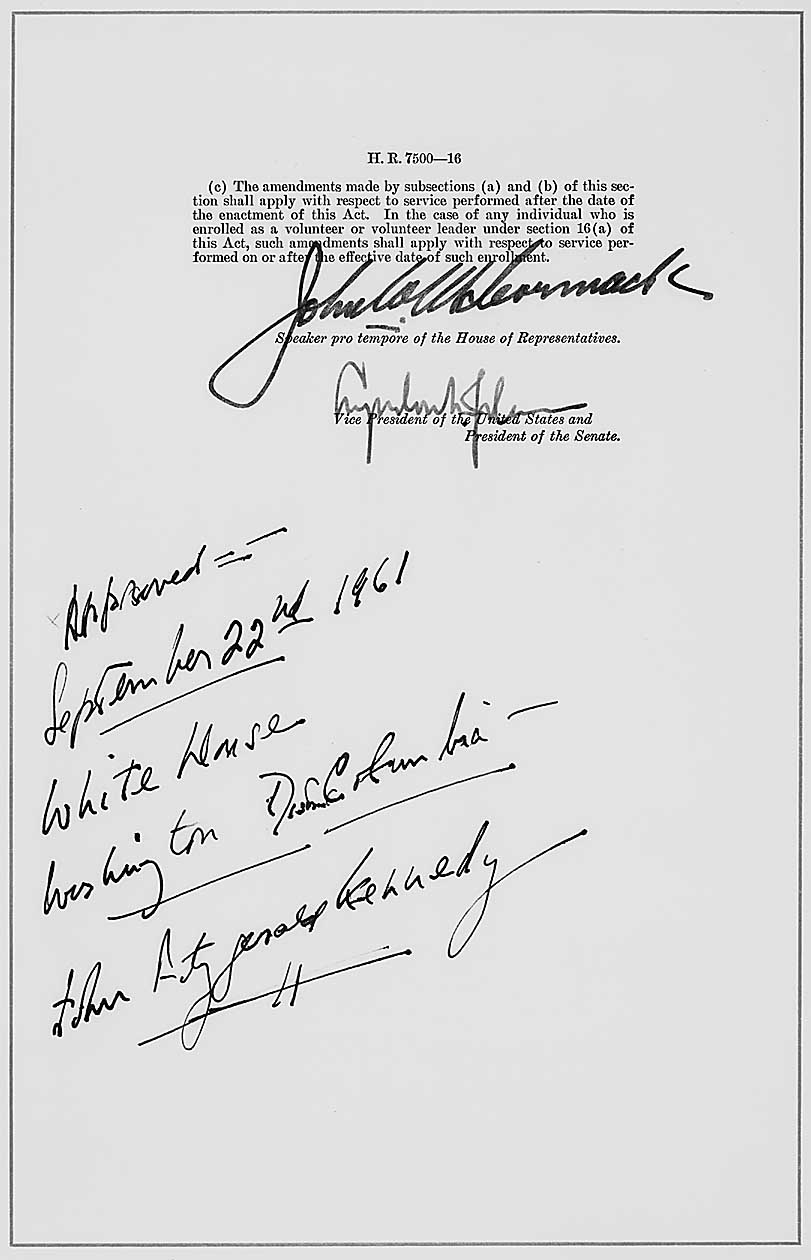 H. R. 7500—16
(c) The amendments made by subsections (a) and (b) of this sec-
tion shall apply with respect to service performed after the date of
the enactment of this Act. In the case of any individual who is
enrolled as a volunteer or volunteer leader under section 16(a) of
this Act, such amendments shall apply with respect to service per-
formed on or after the effective date of such enrollment.
John W. McCormack
Speaker pro tempore of the House of Representatives.
Lyndon B. Johnson
Vice President of the United States and
President of the Senate.
Approved =
September 22nd 1961
White House
Washington Dist. Columbia —
John Fitzgerald Kennedy